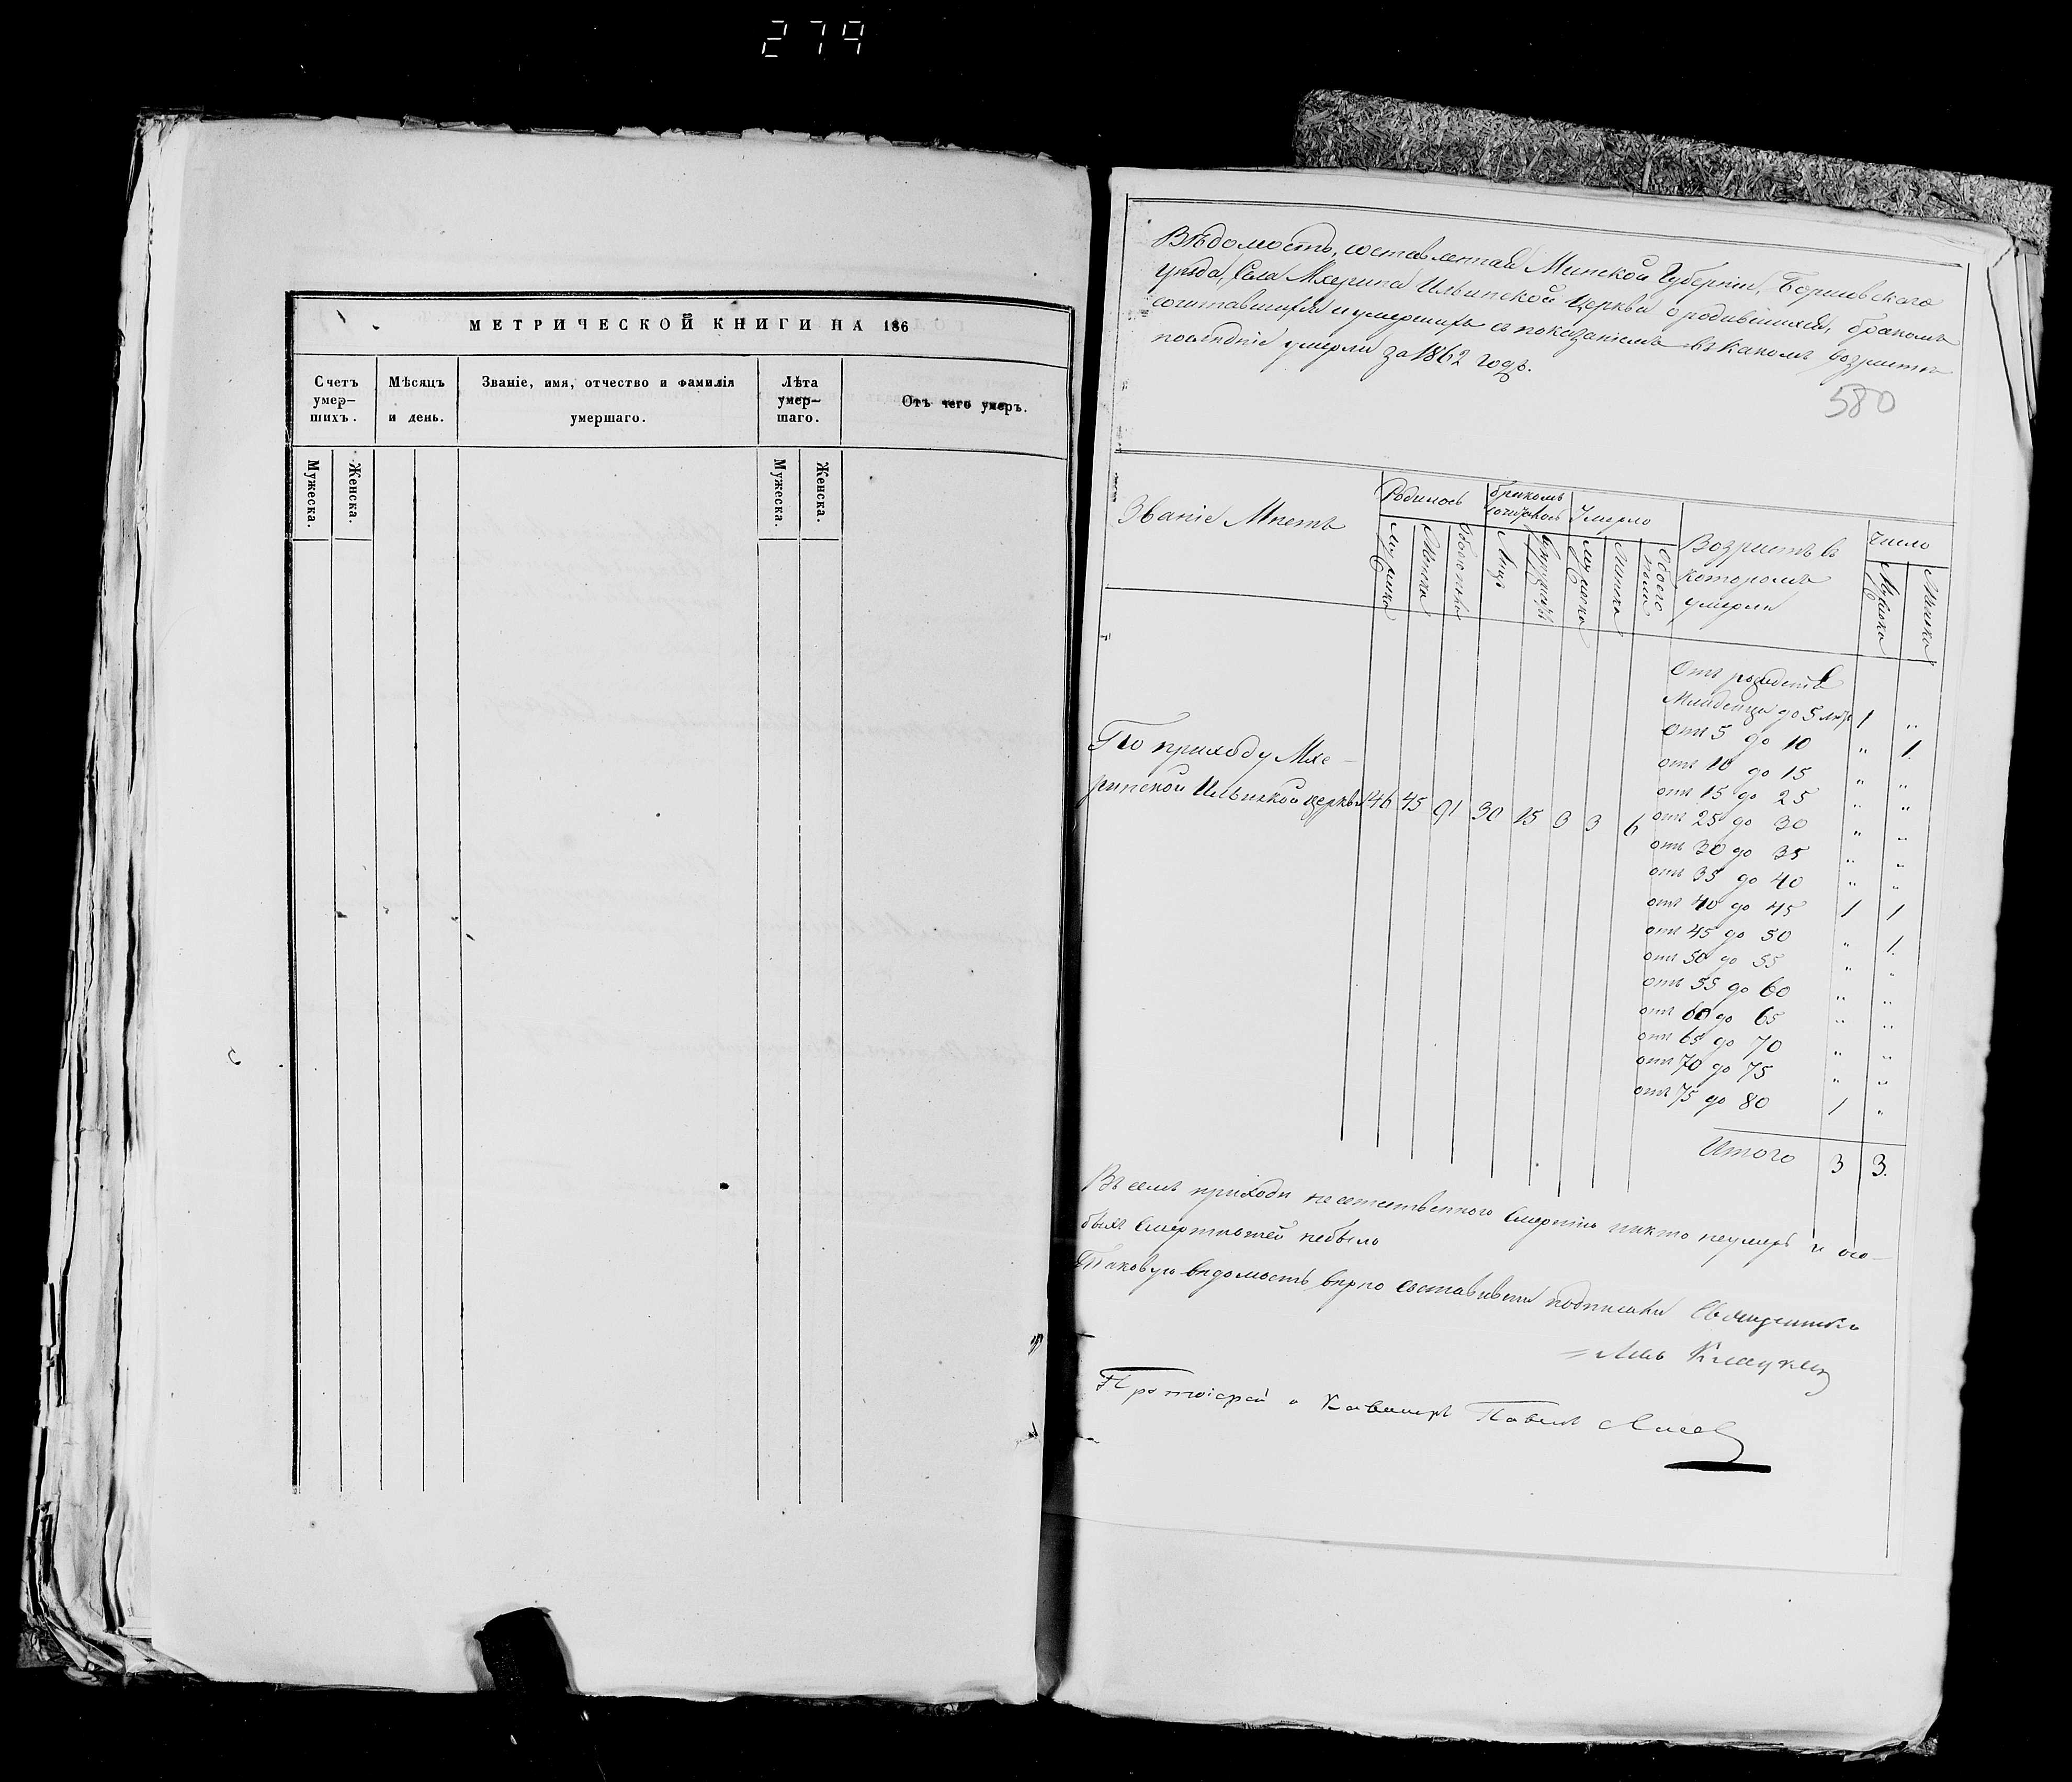 279
МЕТРИЧЕСКОЙ КНИГИ НА 186
Счетъ умер-шихъ.
Мѣсяцъ и день.
Званіе, имя, отчество и фамилія умершаго.
Лѣта умер-шаго.
Отъ чего умеръ.
Мужеска.
Женска.
Мужеска.
Женска.
Вѣдомость, составленная Минской Губерніи, Борисовскаго
уѣзда, Села Мхерина Ильинской Церкви о родившихся, бракомъ
сочитавшихся и умершихъ съ показаніемъ въ какомъ возрастѣ
послѣдніе умерли за 1862 годъ.
580
Званіе Мѣстъ
Родилось
бракомъ
Умерло
Возрастъ въ
которомъ
умерли
Число
Мужска
Женска
Обоего пола
Лицъ
Мужска
Женска
Обоего пола
Мужска
Женска
Отъ рождества
Младенцы до 5 лѣтъ 1 "
отъ 5 до 10 " 1
отъ 10 до 15 " "
отъ 15 до 25 " "
отъ 25 до 30 " "
отъ 30 до 35 " "
отъ 35 до 40 " "
отъ 40 до 45 1 1
отъ 45 до 50 " 1
отъ 50 до 55 " "
отъ 55 до 60 " "
отъ 60 до 65 " "
отъ 65 до 70 " "
отъ 70 до 75 " "
отъ 75 до 80 1 "
Итого 3 3.
По приходу Мхе-
ринской Ильинской церкви 46 45 91 30 15 3 3 6
Въ семъ приходѣ неестественною Смертію никто неумеръ и осо-
быхъ Смертностей небыло
Таковую вѣдомость вѣрно составивши подписали Священникъ
Протоіерей и Кавалеръ Павелъ